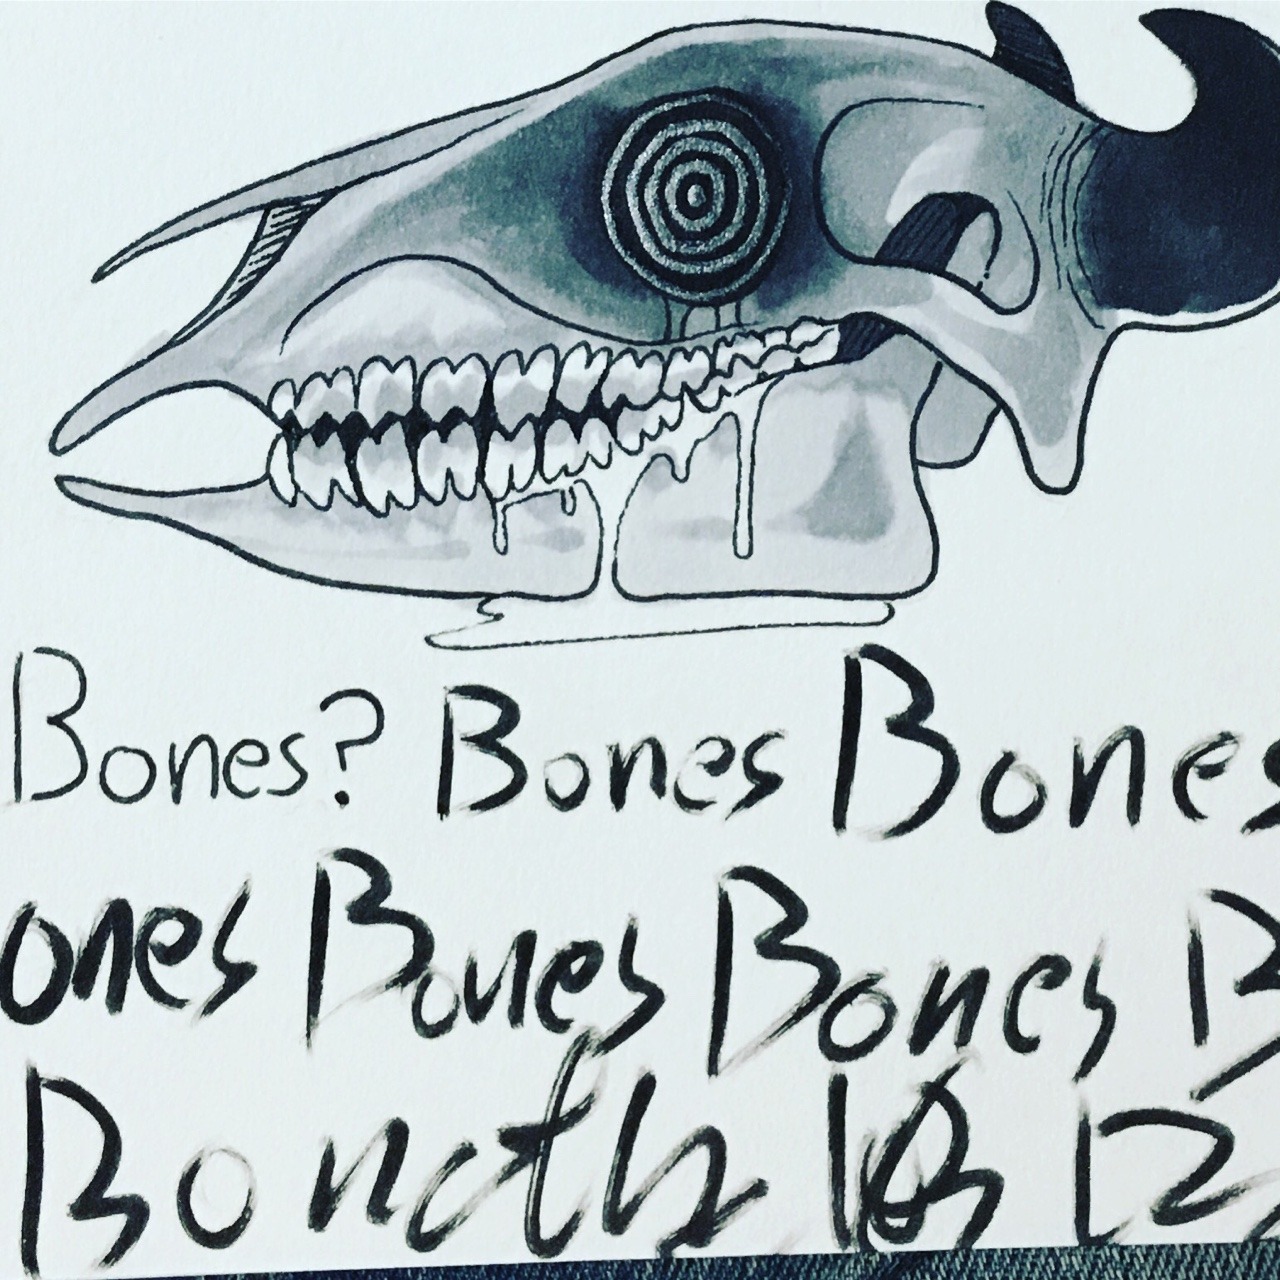 Bones? Bones Bones
ones Bones Bones B
Bo